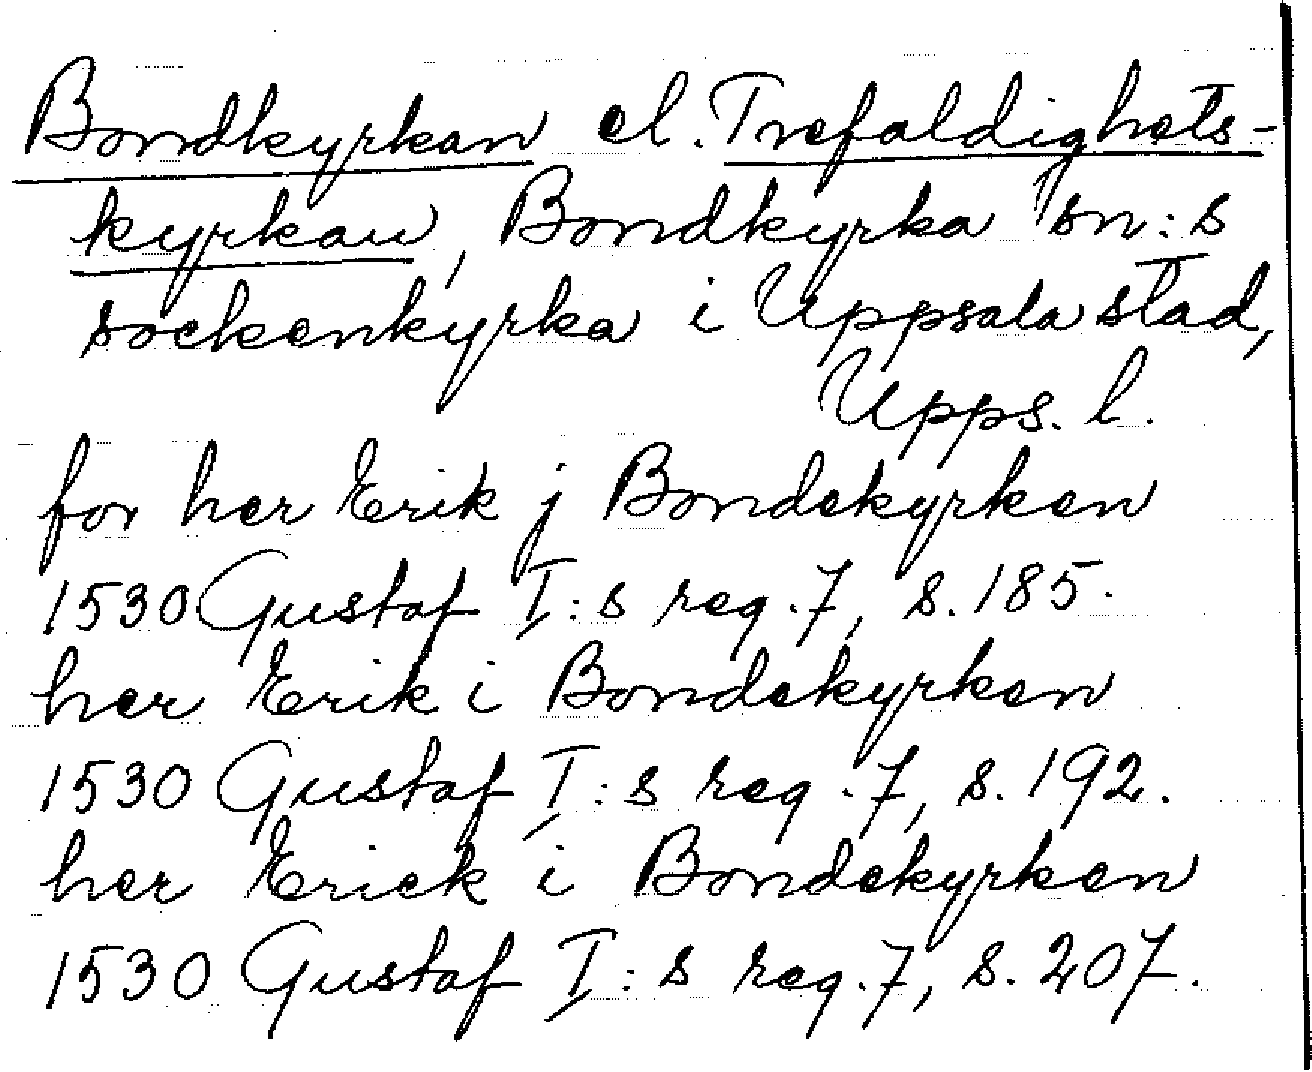 Bondkyrkan el. Trefaldighets-
kyrkan, Bondkyrka sn:s
sockenkyrka i Uppsala stad,
Upps. l.
for her Erik j Bondekyrken
1530 Gustaf I:s reg. 7, s. 185.
her Erik i Bondekyrken
1530 Gustaf I:s reg. 7, s. 192.
her Erick i Bondekyrken
1530 Gustaf I:s reg. 7, s. 207.